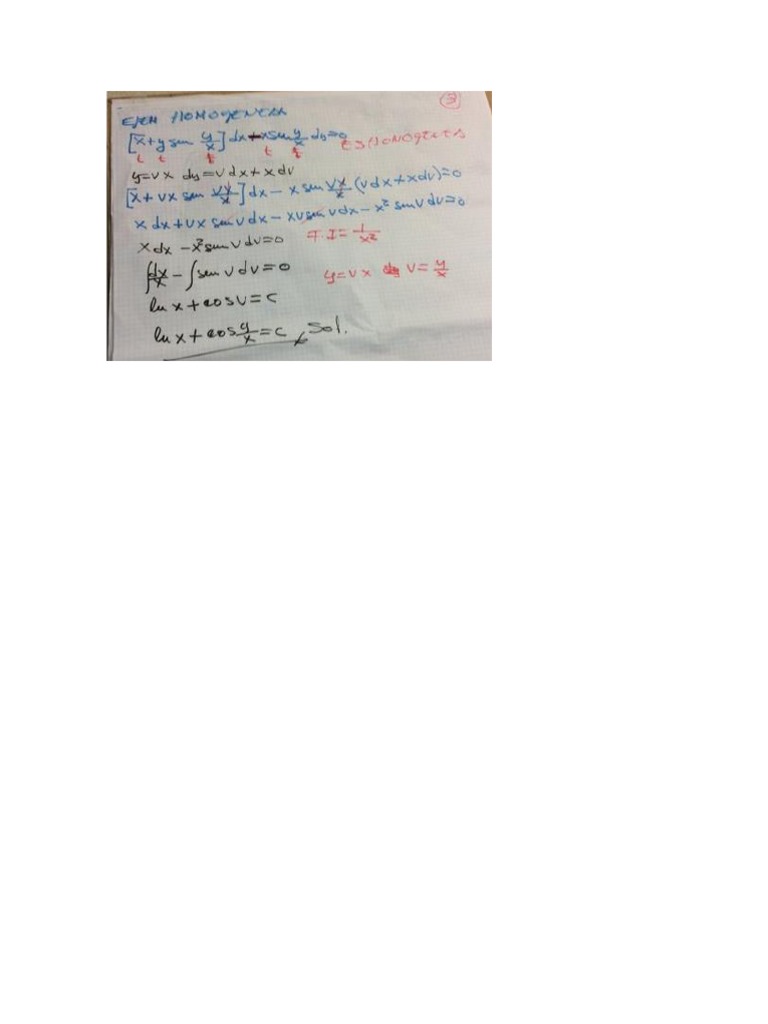 3
EJEM HOMOGENEA
[x + y sen y/x] dx - x sen y/x dy = 0 ES HOMOGENEA
t t t t t
y = vx dy = v dx + x dv
[x + vx sen vx/x] dx - x sen vx/x (v dx + x dv) = 0
x dx + vx sen v dx - xv sen v dx - x² sen v dv = 0
x dx - x² sen v dv = 0 F.I = 1/x²
∫ dx/x - ∫ sen v dv = 0 y = vx v = y/x
ln x + cos v = c
ln x + cos y/x = c Sol.